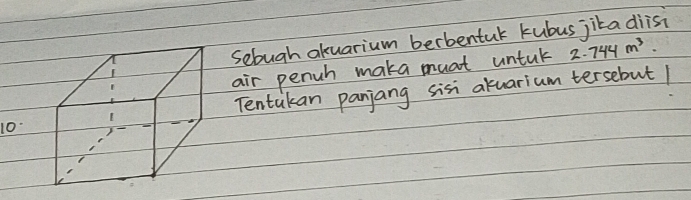 Sebuah akuarium berbentuk kubus jika diisi
air penuh maka muat untuk 2.744 m³.
10. Tentukan panjang sisi akuarium tersebut!